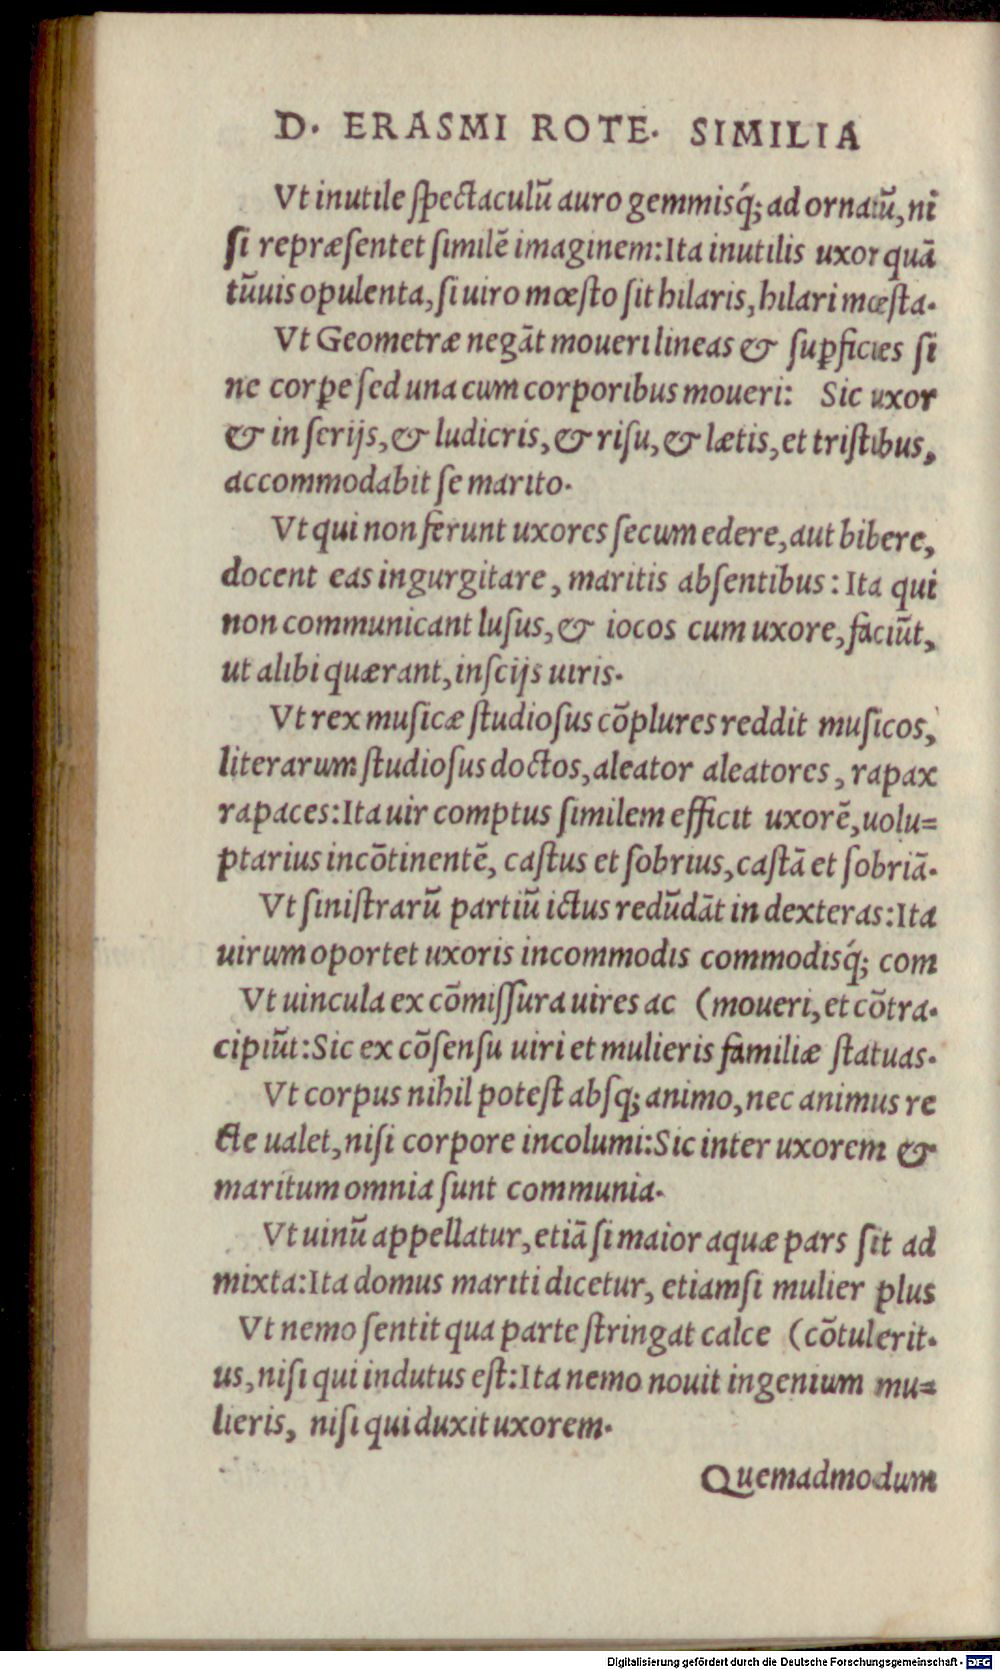 D. ERASMI ROTE. SIMILIA
Vt inutile spectaculũ auro gemmisq́; ad ornatũ, ni
si repræsentet similẽ imaginem: Ita inutilis uxor quã
tũuis opulenta, si uiro mœsto sit hilaris, hilari mœsta.
Vt Geometræ negãt moueri lineas & suꝑficies si
ne corꝑe sed una cum corporibus moueri: Sic uxor
& in serijs, & ludicris, & risu, & lætis, et tristibus,
accommodabit se marito.
Vt qui non ferunt uxores secum edere, aut bibere,
docent eas ingurgitare, maritis absentibus: Ita qui
non communicant lusus, & iocos cum uxore, faciũt,
ut alibi quærant, inscijs uiris.
Vt rex musicæ studiosus cõplures reddit musicos,
literarum studiosus doctos, aleator aleatores, rapax
rapaces: Ita uir comptus similem efficit uxorẽ, uolu=
ptarius incõtinentẽ, castus et sobrius, castã et sobriã.
Vt sinistrarũ partiũ ictus redũdãt in dexteras: Ita
uirum oportet uxoris incommodis commodisq́; com
Vt uincula ex cõmissura uires ac (moueri, et cõtra.
cipiũt: Sic ex cõsensu uiri et mulieris familiæ statuas.
Vt corpus nihil potest absq; animo, nec animus re
cte ualet, nisi corpore incolumi: Sic inter uxorem &
maritum omnia sunt communia.
Vt uinũ appellatur, etiã si maior aquæ pars sit ad
mixta: Ita domus mariti dicetur, etiamsi mulier plus
Vt nemo sentit qua parte stringat calce (cõtulerit.
us, nisi qui indutus est: Ita nemo nouit ingenium mu=
lieris, nisi qui duxit uxorem.
Quemadmodum
Digitalisierung gefördert durch die Deutsche Forschungsgemeinschaft - DFG